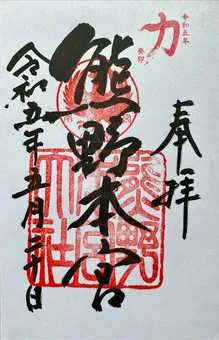 奉拝
力
令和五年
癸卯
熊野本宮
令和五年五月二十日
熊野
本宮
大社